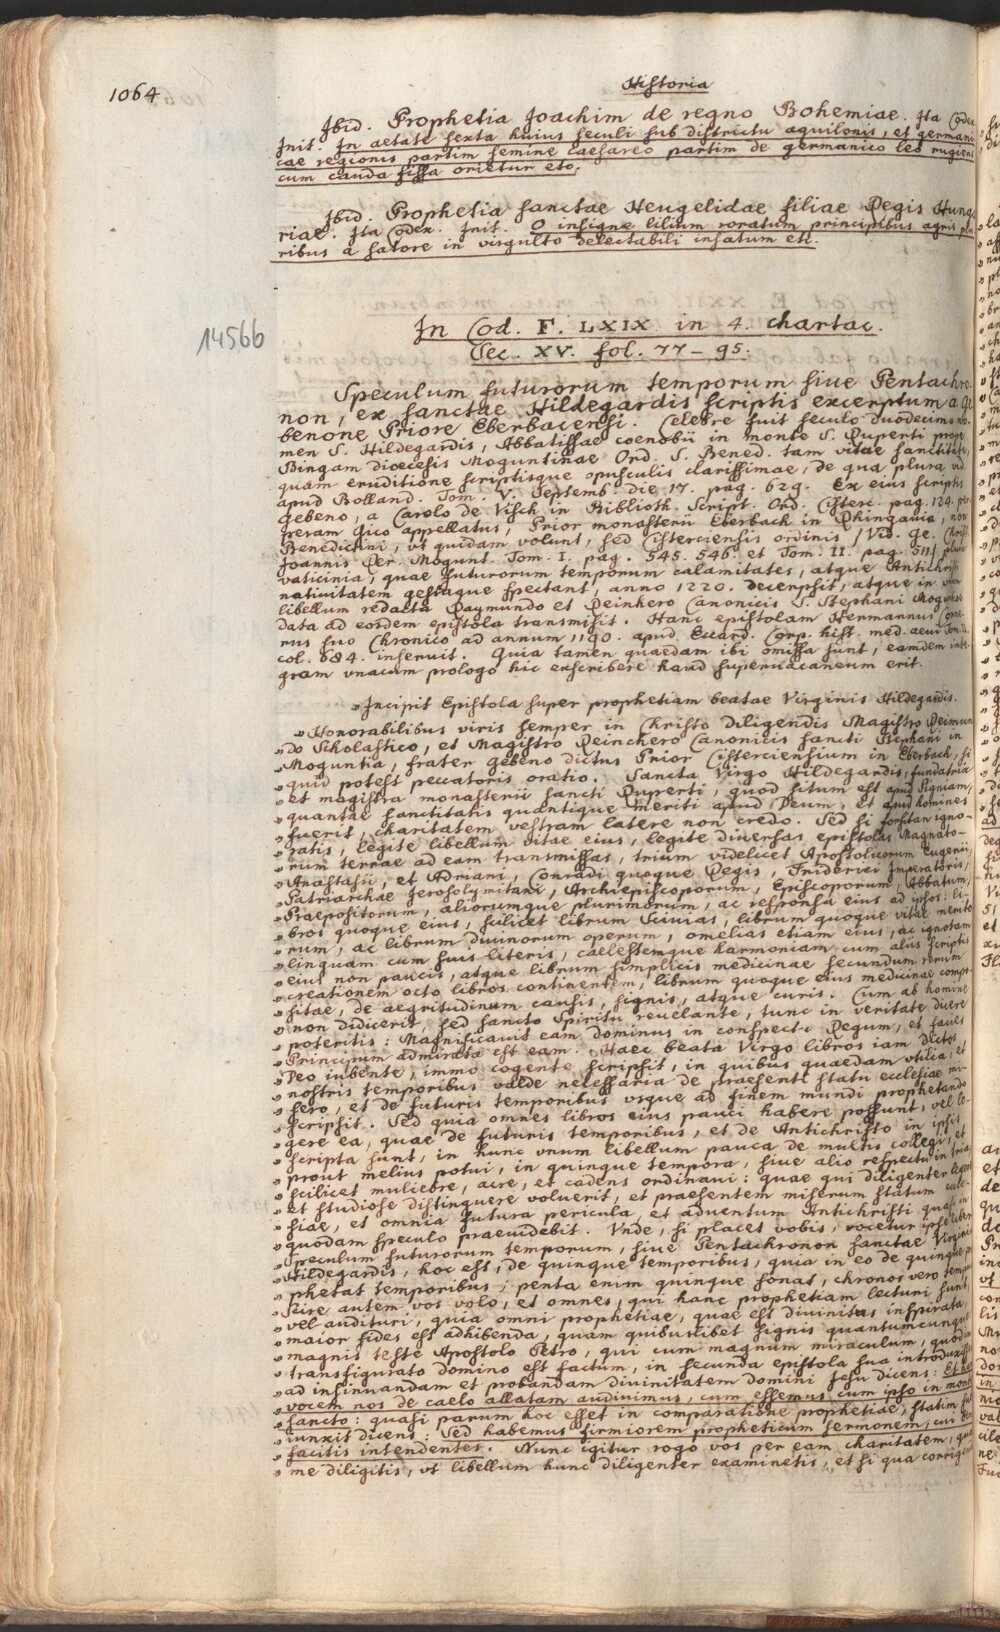 1064
Historia
Ibid. Prophetia Joachim de regno Bohemiae. Ita Codex
Init. In aetate sexta huius seculi sub districtu aquilonis, et germani
cae regionis partim semine caesareo partim de germanico leo rugiens
cum cauda fissa orietur etc.
Ibid. Prophetia sanctae Heugelidae filiae Regis Hunga
riae. Ita Codex. Init. O insigne lilium roratum principibus agris plu
ribus a satore in virgulto delectabili insatum etc.
14566
In Cod. F. LXIX in 4. chartac.
Sec. XV. fol. 77 – 95.
Speculum futurorum temporum siue Pentachro-
non, ex sanctae Hildegardis scriptis excerptum a Ge
benone Priore Eberbacensi. Celebre fuit seculo duodecimo no-
men S. Hildegardis, Abbatissae coenobii in monte S. Ruperti prope
Bingam dioecesis Moguntinae Ord. S. Bened. tam vitae sanctitate,
quam eruditione scriptisque opusculis clarissimae, de qua plura vid.
apud Bolland. Tom. V. Septemb. die 17. pag. 629. Ex eius scriptis
Gebeno, a Carolo de Visch in Biblioth. Script. Ord. Cisterc. pag. 124. per-
peram Gico appellatus, Prior monasterii Eberbach in Rhingauia, non
Benedictini, vt quidam volunt, sed Cisterciensis ordinis /Vid. Ge. Christ.
Joannis Rer. Mogunt. Tom. I. pag. 545. 546. et Tom. II. pag. 511/ plura
vaticinia, quae futurorum temporum calamitates, atque Antichristi
natiuitatem gestaque spectant, anno 1220. decerpsit, atque in vnum
libellum redacta Raymundo et Reinhero Canonicis S. Stephani Moguntiae
data ad eosdem epistola transmisit. Hanc epistolam Hermannus Corne-
rus suo Chronico ad annum 1190. apud Eccard. Corp. hist. med. aeui Tom. II.
col. 684. inseruit. Quia tamen quaedam ibi omissa sunt, eamdem inte-
gram vnacum prologo hic exscribere haud superuacaneum erit.
„Incipit Epistola super prophetiam beatae Virginis Hildegardis.
„Honorabilibus viris semper in Christo diligendis Magistro Reimun
„do Scholastico, et Magistro Reinchero Canonicis sancti Stephani in
„Moguntia, frater Gebeno dictus Prior Cisterciensium in Eberbach, si
„quid potest peccatoris oratio. Sancta Virgo Hildegardis, fundatrix
„et magistra monasterii sancti Ruperti, quod situm est apud Pigniam,
„quantae sanctitatis quantique meriti apud Deum, et apud homines
„fuerit, charitatem vestram latere non credo. Sed si forsitan igno-
„ratis, legite libellum vitae eius, legite diuersas epistolas Magnato-
„rum terrae ad eam transmissas, trium videlicet Apostolicorum Eugenii,
„Anastasii, et Adriani, Conradi quoque Regis, Friderici Imperatoris,
„Patriarchae Jerosolymitani, Archiepiscoporum, Episcoporum, Abbatum,
„Praepositorum, aliorumque plurimorum, ac responsa eius ad ipsos: li-
„bros quoque eius, scilicet librum Sciuias, librum quoque vitae merito
„rum, ac librum diuinorum operum, omelias etiam eius, ac ignotam
„linguam cum suis literis, caelestemque harmoniam cum aliis scriptis
„eius non paucis, atque librum simplicis medicinae secundum rerum
„creationem octo libros continentem, librum quoque eius medicinae compo-
„sitae, de aegritudinum causis, signis, atque curis. Cum ab homine
„non didicerit, sed sancto Spiritu reuelante, tunc in veritate dicere
„poteritis: Magnificauit eam dominus in conspectu Regum, et facies
„Principum admirata est eam. Haec beata Virgo libros iam dictos
„Deo iubente, immo cogente scripsit, in quibus quaedam vtilia, et
„nostris temporibus valde necessaria de praesenti statu ecclesiae mi-
„sero, et de futuris temporibus vsque ad finem mundi prophetando
„scripsit. Sed quia omnes libros eius pauci habere possunt, vel le-
„gere ea, quae de futuris temporibus, et de Antichristo in ipsis
„scripta sunt, in hunc vnum libellum pauca de multis collegi, et
„prout melius potui, in quinque tempora, siue alio respectu in tria,
„scilicet muliebre, acre, et cadens ordinaui: quae qui diligenter legere
„et studiose distinguere voluerit, et praesentem miserum statum eccle-
„siae, et omnia futura pericula, et aduentum Antichristi quasi in
„quodam speculo praeuidebit. Vnde, si placet vobis, vocetur ipse liber
„Speculum futurorum temporum, siue Pentachronon sanctae Virginis
„Hildegardis, hoc est, de quinque temporibus, quia in eo de quinque pro
„phetat temporibus; penta enim quinque sonat, chronos vero tempus.
„Scire autem vos volo, et omnes, qui hanc prophetiam lecturi sunt,
„vel audituri, quia omni prophetiae, quae est diuinitus inspirata,
„maior fides est adhibenda, quam quibuslibet signis quantumcunque
„magnis teste Apostolo Petro, qui cum magnum miraculum, quod in
„transfigurato domino est factum, in secunda epistola sua introduxisset
„ad insinuandam et probandam diuinitatem domini Jesu dicens: Et hanc
„vocem nos de caelo allatam audiuimus, cum essemus cum ipso in monte
„sancto: quasi parum hoc esset in comparatione prophetiae, statim sub
„iunxit dicens: Sed habemus firmiorem propheticum sermonem, cui bene
„facitis intendentes. Nunc igitur rogo vos per eam charitatem, qua
„me diligitis, vt libellum hunc diligenter examinetis, et si qua corrigen